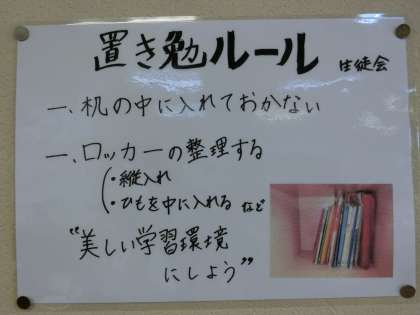 置き勉ルール 生徒会
一、机の中に入れておかない
一、ロッカーの整理する
(・縦入れ
・ひもを中に入れる など
"美しい学習環境
にしよう"